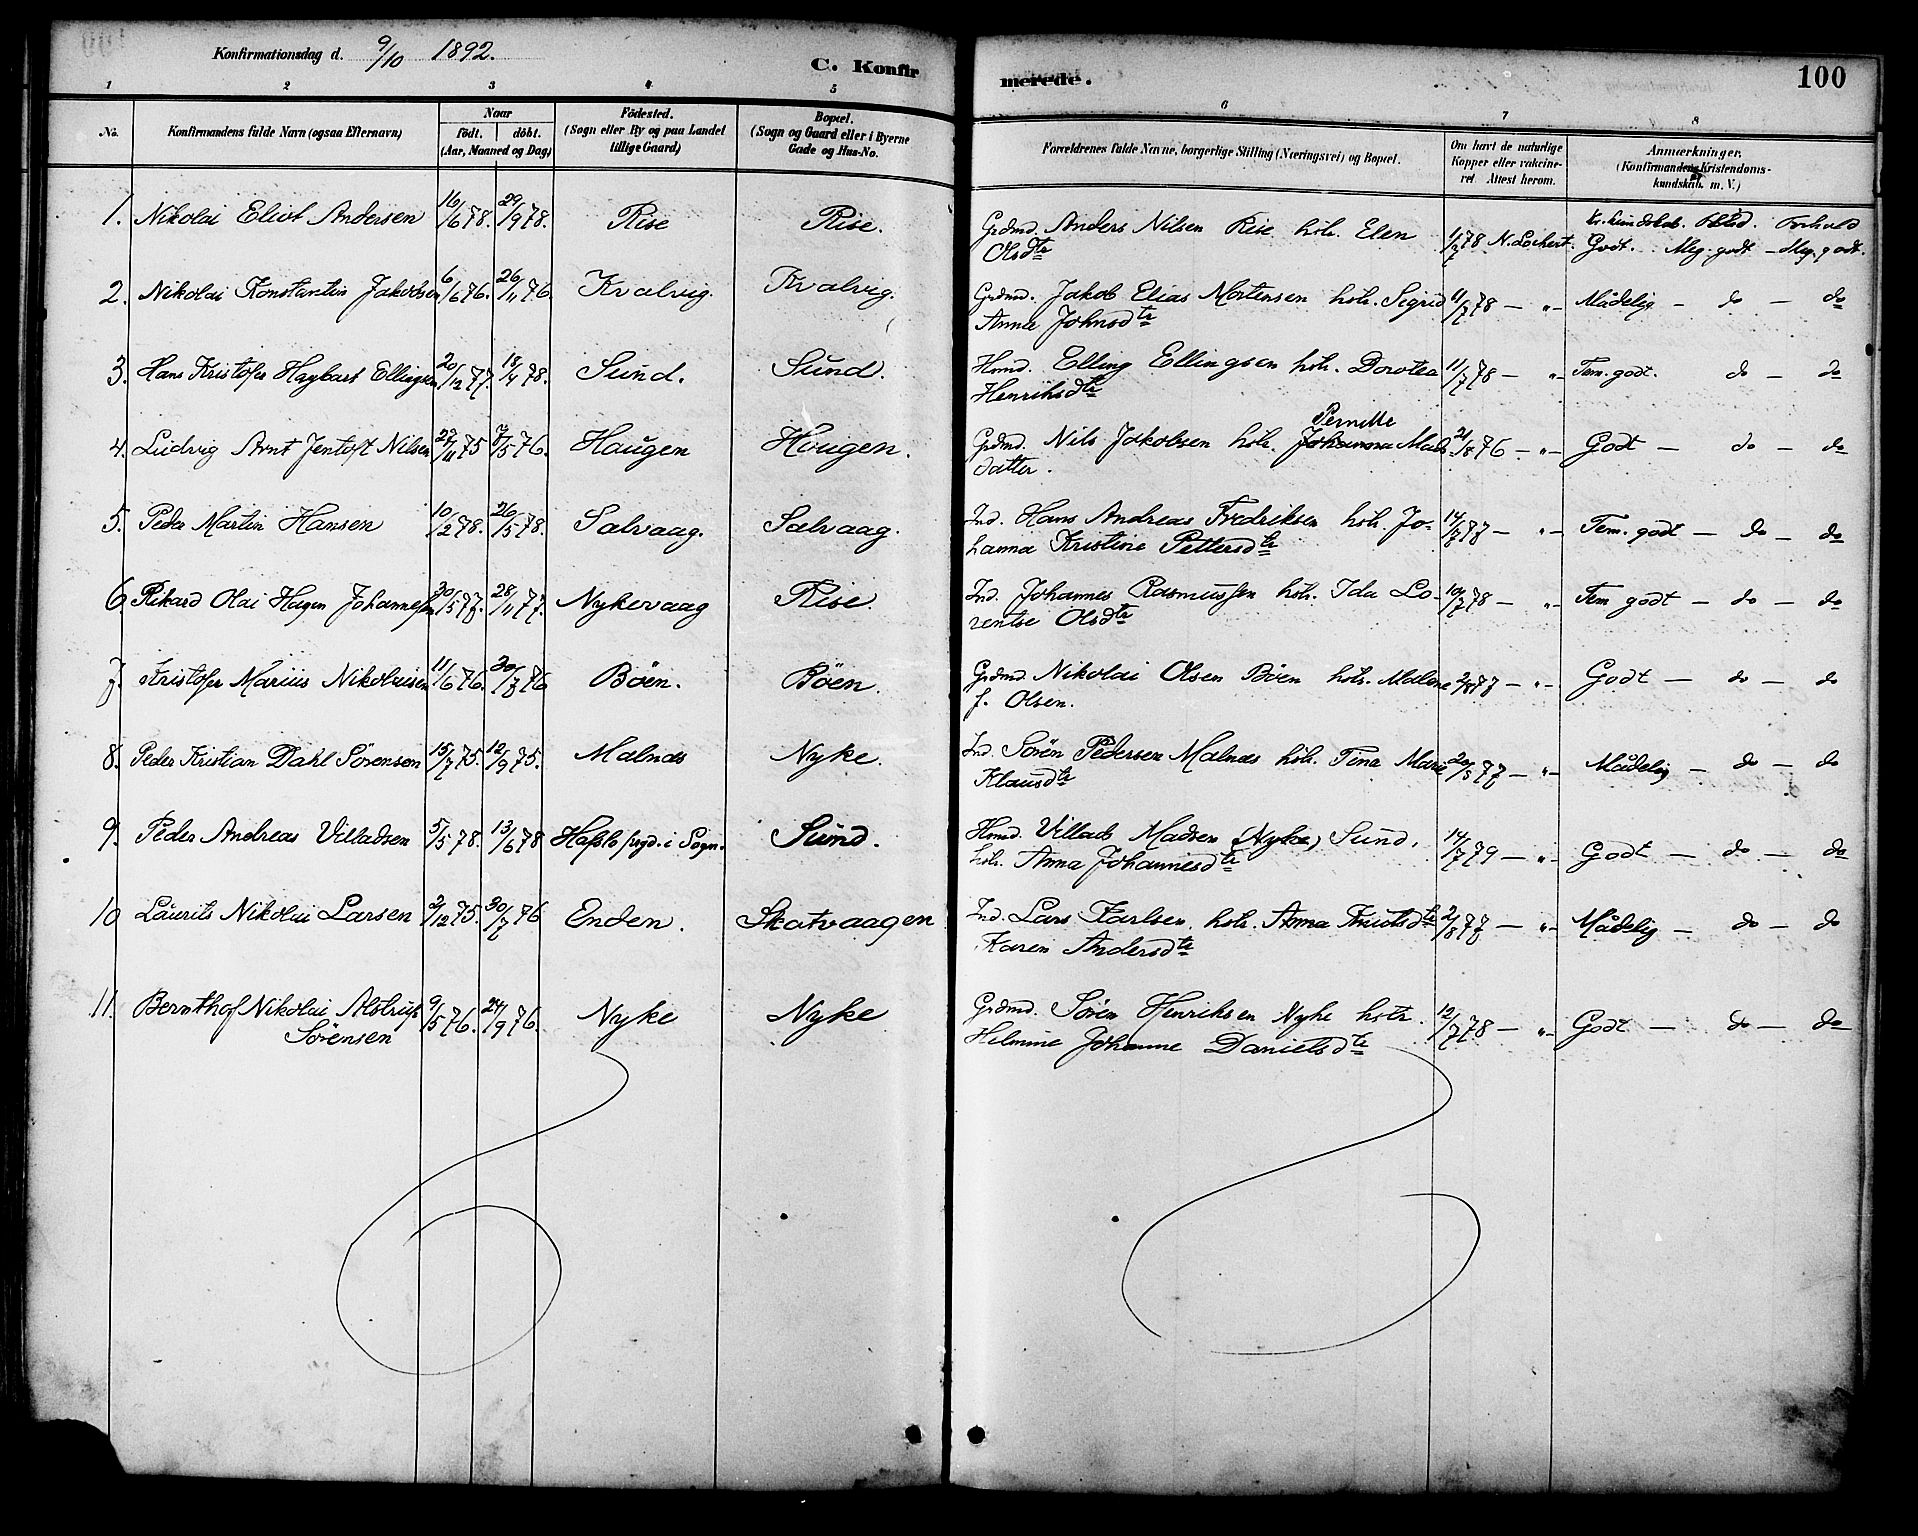 Konfirmationsdag d. 9/10 1892.
C. Konfirmerede.
100
1 2 3 4 5 6 7 8
No.
Konfirmandens fulde Navn (ogsaa Efternavn)
Naar
födt. döbt.
(Aar, Maaned og Dag)
Födested.
(Sogn eller By og paa Landet
tillige Gaard)
Bopæl.
(Sogn og Gaard eller i Byerne
Gade og Hus-No.
Forældrenes fulde Navne, borgerlige Stilling (Næringsvei) og Bopæl.
Om havt de naturlige
Kopper eller vakcine-
ret. Attest herom.
Anmærkninger.
(Konfirmandens Kristendoms-
kundskab. m. V.)
Kr. kundskab. Flid. Forhold
1. Nikolai Eliot Andersen 16/6 78. 29/9 78. Rise Rise. Grdmd. Anders Nilsen Rise hstr. Elen 1/7 78 N. Lochert. Godt. Meg. godt - Meg. godt.
Olsdtr
2. Nikolai Konstantin Jakobsen 6/6 76. 26/11 76. Kvalvig. Kvalvig. Grdmd. Jakob Elias Mortensen hstr. Sigrid 11/7 78 — „ — Mådelig — do — do
Anna Johnsdtr
3. Hans Kristofer Hagbart Ellingsen 20/12 77. 18/4 78. Sund. Sund. Hmd. Elling Ellingsen hstr. Dorotea 11/7 78 — „ Tem. godt. do — do
Henriksdtr
Pernille
4. Ludvig Arnt Jentoft Nilsen 27/11 75 7/5 76. Haugen Haugen. Grdmd. Nils Jakobsen hstr. Johanna Mads 21/8 76 — „ — Godt — do — do
datter.
5. Peder Martin Hansen 10/2 78. 26/5 78. Salvaag. Salvaag. Ind. Hans Andreas Fredriksen hstr. Jo- 14/7 77 — „ — Tem. godt — do — do
hanna Kristine Pettersdtr
6 Rikard Olai Hagen Johannessen 30/5 77. 28/11 77. Nykevaag Rise. Ind. Johannes Rasmussen hstr. Ida Lo- 10/7 78 — „ Tem godt — do — do
rentse Olsdtr
7. Kristofer Marius Nikolaisen 11/6 76. 30/7 76 Böen. Böen. Grdmd Nikolai Olsen Böen hstr. Malene 2/8 77 — „ — Godt — do — do
f. Olsen.
8. Peder Kristian Dahl Sörensen 15/7 75. 12/9 75. Malnæs Nyke. Ind. Sören Pedersen Malnæs hstr. Tina Marie 20/5 77 — „ Mådelig — do — do
Klausdtr
9. Peder Andreas Villadsen 5/5 78. 13/6 78 Hafslo prgd. i Sogn. Sund. Hmd. Villads Madsen (Nyke) Sund. 14/7 79 — „ — Godt — do — do
hstr. Anna Johannesdtr
10 Laurits Nikolai Larsen 2/12 75. 30/7 76 Enden. Skatvaagen Ind. Lars Karlsen. hstr. Anna Knutsdtr 2/8 77 — „ — Mådelig — do — do
Karen Andersdtr
11. Bernthof Nikolai Alstrup 9/5 76. 24/9 76. Nyke Nyke Grdmd. Sören Henriksen Nyke hstr. 12/7 78 — „ — Godt — do — do
Sörensen Helmine Johanne Danielsdtr